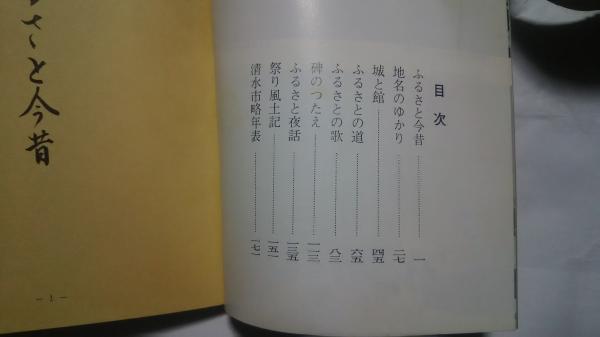 目次
ふるさと今昔 一
地名のゆかり 二七
城と館 四五
ふるさとの道 六五
ふるさとの歌 八三
碑のつたえ 一一三
ふるさと夜話 一三五
祭り風土記 一五一
清水市略年表 一七一
るさと今昔
— 1 —